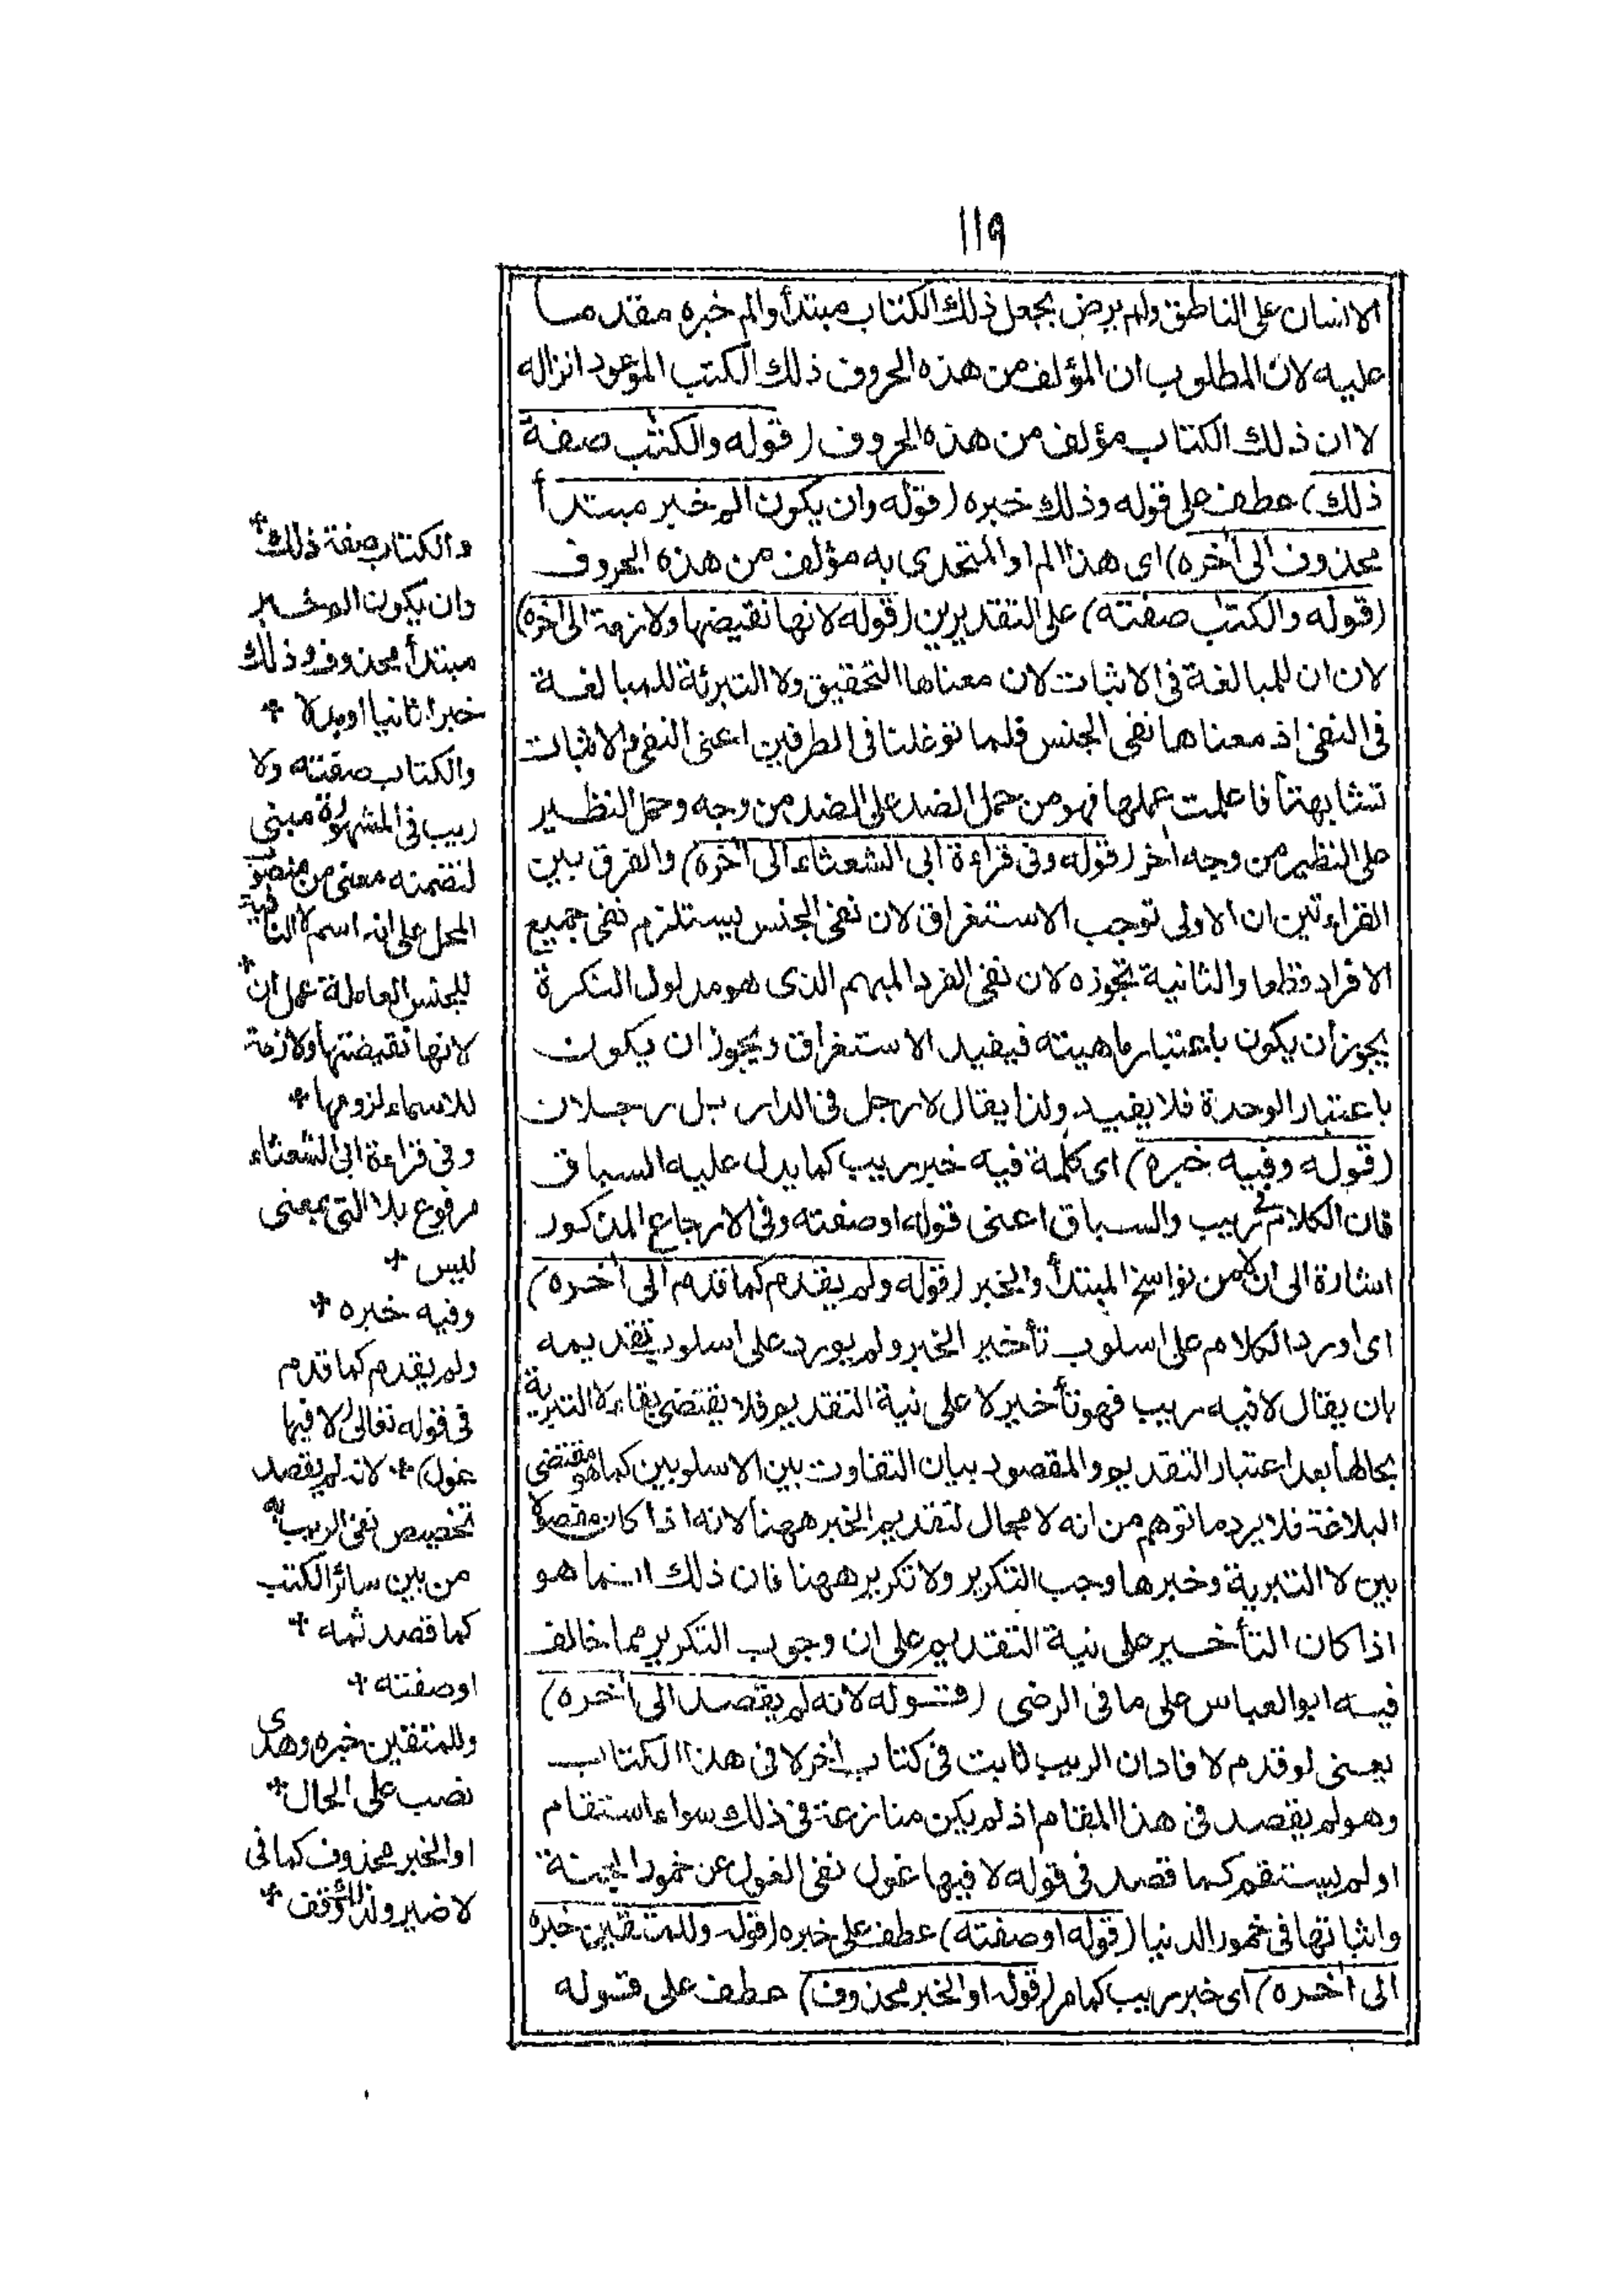 ١١٩
الانسان على الناطق ولم يرض بجعل ذلك الكتاب مبتدأ والم خبره مقدما
عليه لان المطلوب ان المؤلف من هذه الحروف ذلك الكتب الموعود انزاله
لا ان ذلك الكتاب مؤلف من هذه الحروف (قوله والكتب صفة
ذلك) عطف على قوله وذلك خبره (قوله وان يكون الم خبر مبتدأ
محذوف الى أخره) اى هذا الم او المتحدى به مؤلف من هذه الحروف
(قوله والكتب صفته) على التقديرين (قوله لانها نقيضها ولازمة الى أخره)
لان ان للمبالغة فى الاثبات لان معناها التحقيق ولا التبرئة للمبالغة
فى النفى اذ معناها نفى الجنس فلما توغلتا فى الطرفين اعنى النفى والاثبات
تشابهتا فاعملت عملها فهو من حمل الضد على الضد من وجه وحمل النظير
على النظير من وجه أخر (قوله وفى قراءة ابى الشعثاء الى أخره) والفرق بين
القراءتين ان الاولى توجب الاستغراق لان نفى الجنس يستلزم نفى جميع
الافراد قطعا والثانية تجوزه لان نفى الفرد المبهم الذى هو مدلول النكرة
يجوز ان يكون باعتبار ماهيته فيفيد الاستغراق ويجوز ان يكون
باعتبار الوحدة فلا يفيد ولذا يقال لا رجل فى الدار بل رجلان
(قوله وفيه خبره) اى كلمة فيه خبر ريب كما يدل عليه السباق
فان الكلام فى ريب والسياق اعنى قوله او صفته وفى الارجاع المذكور
اشارة الى ان لا من نواسخ المبتدأ والخبر (قوله ولم يقدم كما قدم الى أخره)
اى اورد الكلام على اسلوب تأخير الخبر ولم يورد على اسلوب تقديمه
بان يقال لا فيه ريب فهو تأخير لا على نية التقديم فلا يقتضى بقاء لا التبرية
بحالها بعد اعتبار التقديم والمقصود بيان التفاوت بين الاسلوبين كما هو مقتضى
البلاغة فلا يرد ما توهم من انه لا مجال لتقديم الخبر ههنا لانه اذا كان مفصولا
بين لا التبرية وخبرها وجب التكرير ولا تكرير ههنا فان ذلك انما هو
اذا كان التأخير على نية التقديم على ان وجوب التكرير مما خالف
فيه ابو العباس على ما فى الرضى (قوله لانه لم يقصد الى أخره)
يعنى لو قدم لافاد ان الريب ثابت فى كتاب أخر لا فى هذا الكتاب
وهو لم يقصد فى هذا المقام اذ لم يكن منازعة فى ذلك سواء استقام
او لم يستقم كما قصد فى قوله لا فيها غول نفى الغول عن خمور الجنة
واثباتها فى خمور الدنيا (قوله او صفته) عطف على خبره (قوله وللمتقين خبره
الى أخره) اى خبر ريب كما مر (قوله او الخبر محذوف) عطف على قوله
والكتاب صفة ذلك *
وان يكون الم خبر
مبتدأ محذوف وذلك
خبرا ثانيا او بدلا *
والكتاب صفته ولا
ريب فى المشهورة مبنى
لتضمنه معنى من منصوب
المحل على انه اسم لا النافية
للجنس العاملة عمل ان *
لانها نقيضتها ولازمة
للاسماء لزومها *
وفى قراءة ابى الشعثاء
مرفوع بلا التى بمعنى
ليس *
وفيه خبره *
ولم يقدم كما قدم
فى قوله تعالى (لا فيها
غول) * لانه لم يقصد
تخصيص نفى الريب به
من بين سائر الكتب
كما قصد ثمه *
او صفته *
وللمتقين خبره وهدى
نصب على الحال *
او الخبر محذوف كما فى
لا ضير ولذلك وقف *